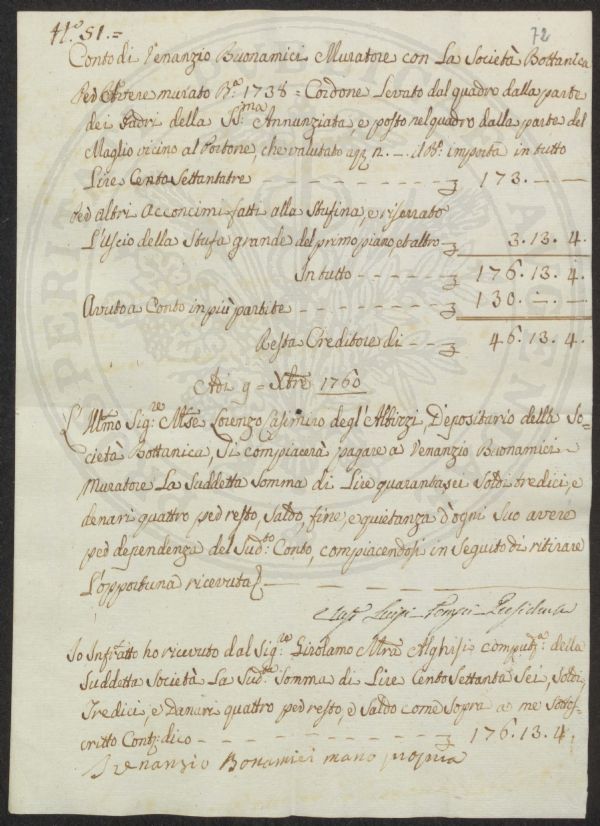 N.° 51.=
72
Conto di Venanzio Buonamici Muratore con La Società Bottanica
Ped Avere murato Ba. 1738 = Cordone Levato dal quadro dalla parte
dei Padri della SS:ma Annunziata, e posto nel quadro dalla parte del
Maglio vicino al Portone, che valutato importa in tutto
Lire Cento Settantatre 173. — —
Ped altri Acconcimi fatti alla Stufina, e riserrato
L'Uscio della Stufa grande del primo piano, et altro 3. 13. 4.
In tutto 176. 13. 4.
Avuto a Conto in più partite 130. — . —
Resta Creditore di 46. 13. 4.
Adi 9 = Xbre 1760
L'Illmo Sig:re Mse Lorenzo Casimiro degl'Albizzi Depositario della So-
cietà Bottanica, Si compiacerà pagare a Venanzio Buonamici
Muratore La Suddetta Somma di Lire quarantasei Soldi tredici, e
denari quattro ped resto, Saldo, fine, e quietanza d'ogni Suo avere
ped dependenza del Sud:to Conto, compiacendosi in Seguito di ritirare
L'opportuna ricevuta
Luigi Presidente
Io Infr:atto ho ricevuto dal Sig:re Girolamo Alghisi della
Suddetta Società La Sud:tta Somma di Lire Cento Settanta Sei, Soldi
Tredici, e Danari quattro ped resto, e Saldo come Sopra a me Sottos-
critto Cont:i dico 176. 13. 4.
Io Venanzio Bonamici mano propria